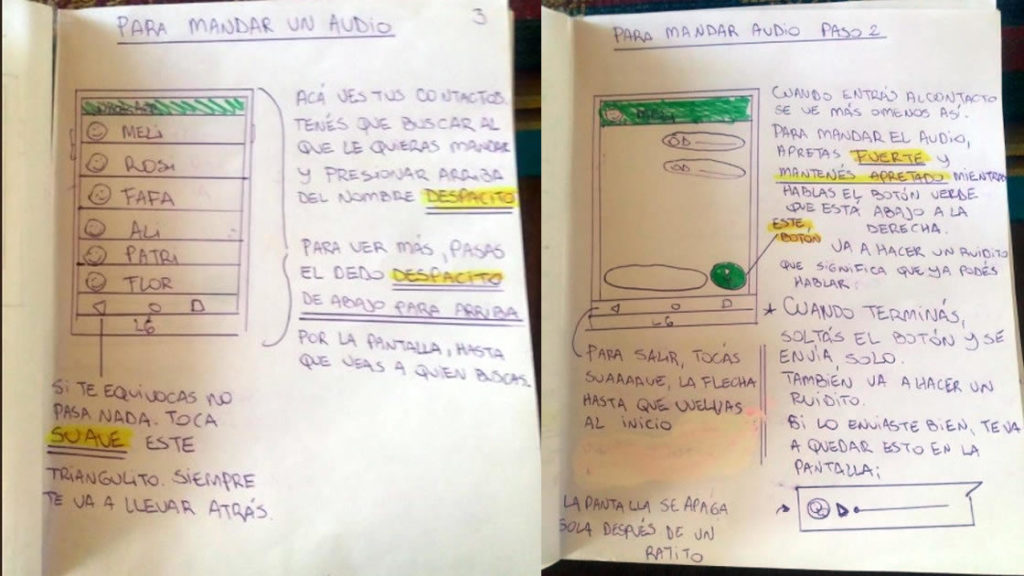 PARA MANDAR UN AUDIO
3
MELI
ROSI
FAFA
ALI
PATRI
FLOR
LG
ACÁ VES TUS CONTACTOS.
TENÉS QUE BUSCAR AL
QUE LE QUIERAS MANDAR
Y PRESIONAR ARRIBA
DEL NOMBRE DESPACITO
PARA VER MÁS, PASAS
EL DEDO DESPACITO
DE ABAJO PARA ARRIBA
POR LA PANTALLA, HASTA
QUE VEAS A QUIEN BUSCAS.
SI TE EQUIVOCAS NO
PASA NADA. TOCA
SUAVE ESTE
TRIANGULITO. SIEMPRE
TE VA A LLEVAR ATRÁS.
PARA MANDAR AUDIO PASO 2
CUANDO ENTRÁS AL CONTACTO
SE VE MÁS O MENOS ASÍ.
PARA MANDAR EL AUDIO,
APRETAS FUERTE Y
MANTENÉS APRETADO MIENTRAS
HABLAS EL BOTÓN VERDE
QUE ESTÁ ABAJO A LA
DERECHA.
ESTE
BOTON
VA A HACER UN RUIDITO
QUE SIGNIFICA QUE YA PODÉS
HABLAR.
LG
* CUANDO TERMINÁS,
SOLTÁS EL BOTÓN Y SE
ENVÍA SOLO.
TAMBIÉN VA A HACER UN
RUIDITO.
SI LO ENVIASTE BIEN, TE VA
A QUEDAR ESTO EN LA
PANTALLA:
PARA SALIR, TOCÁS
SUAAAAVE, LA FLECHA
HASTA QUE VUELVAS
AL INICIO
LA PANTALLA SE APAGA
SOLA DESPUÉS DE UN
RATITO